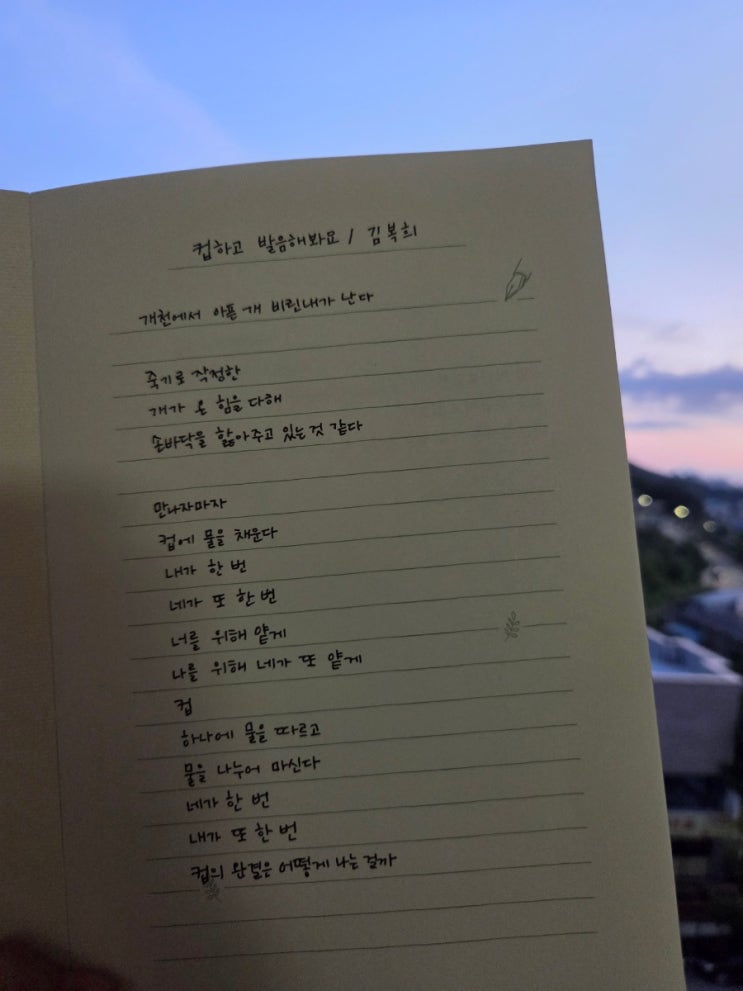 컵하고 발음해봐요 / 김복희
개천에서 아픈 개 비린내가 난다
죽기로 작정한
개가 온 힘을 다해
손바닥을 핥아주고 있는 것 같다
만나자마자
컵에 물을 채운다
내가 한 번
네가 또 한 번
너를 위해 얕게
나를 위해 네가 또 얕게
컵
하나에 물을 따르고
물을 나누어 마신다
네가 한 번
내가 또 한 번
컵의 완결은 어떻게 나는 걸까